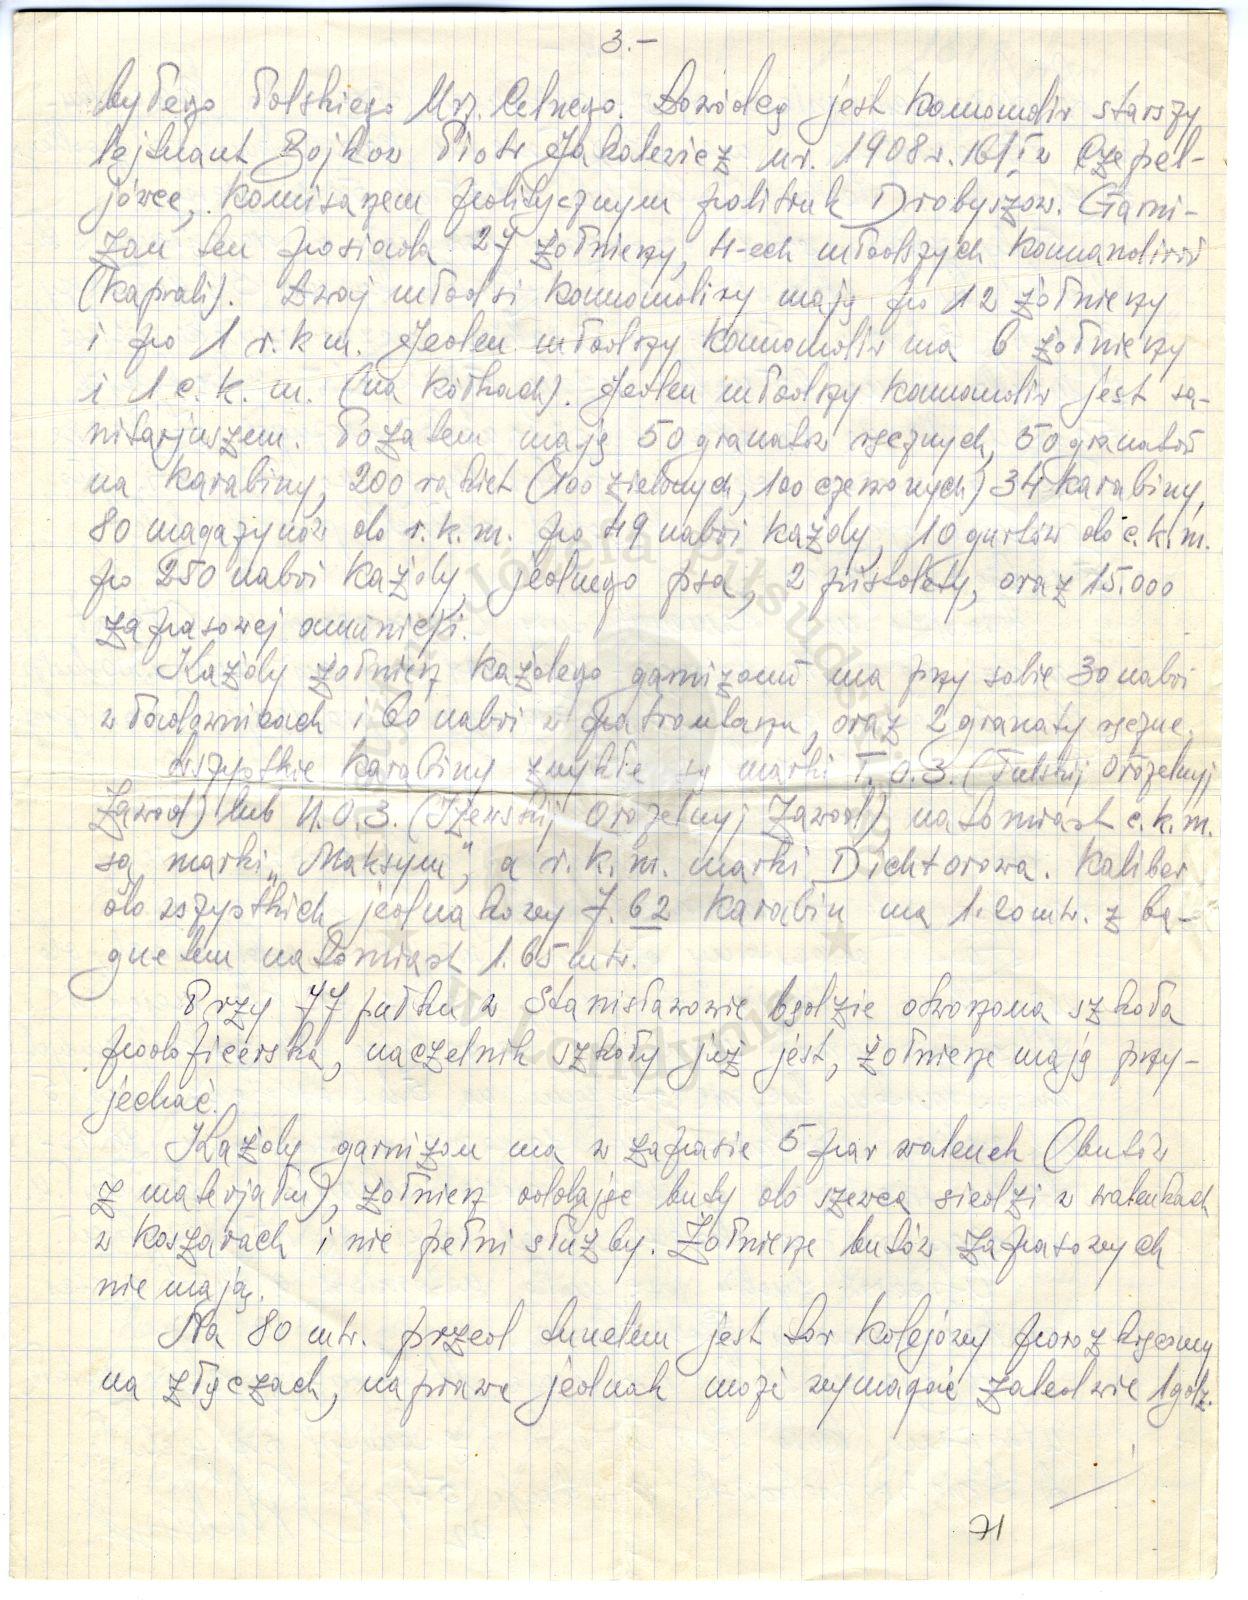 3.-
byłego Polskiego Urz. Celnego. Dowódcą jest komandir starszy
lejtnant Bojkow Piotr Jakolewicz ur. 1908 r. 16/I w Czepel-
jówce, komisarzem politycznym politruk Drobyszow. Garni-
zon ten posiada 27 żołnierzy, 4-ech młodszych komandirów
(kaprali). Dwaj młodsi komandirzy mają po 12 żołnierzy
i po 1 r.k.m. Jeden młodszy komandir ma 6 żołnierzy
i 1 c.k.m. (na kółkach). Jeden młodszy komandir jest sa-
nitarjuszem. Pozatem mają 50 granatów ręcznych, 50 granatów
na karabiny, 200 rakiet (100 zielonych, 100 czerwonych) 34 karabiny,
80 magazynów do r.k.m. po 49 naboi każdy, 10 gurtów do c.k.m.
po 250 naboi każdy, jednego psa, 2 pistolety, oraz 15.000
zapasowej amunicji.
Każdy żołnierz każdego garnizonu ma przy sobie 30 naboi
w ładownicach i 60 naboi w patrontaszu, oraz 2 granaty ręczne.
Wszystkie karabiny zwykłe są marki T.O.Z. (Tulskij Orożelnyj
Zawod) lub I.O.Z. (Iżewskij Orożelnyj Zawod), natomiast c.k.m.
są marki „Maksym", a r.k.m. marki Dichtorowa. Kaliber
do wszystkich jednakowy 7.62 Karabin ma 1.20 mtr. z ba-
gnetem natomiast 1.65 mtr.
Przy 77 pułku w Stanisławowie będzie otworzona szkoła
podoficerska, naczelnik szkoły już jest, żołnierze mają przy-
jechać.
Każdy garnizon ma w zapasie 5 par walenek (butów
z materjału), żołnierz oddając buty do szewca siedzi w walenkach
w koszarach i nie pełni służby. Żołnierze butów zapasowych
nie mają.
Na 80 mtr. przed tunelem jest tor kolejowy porozkręcany
na złączach, naprawa jednak może wymagać zaledwie 1 godz.
71